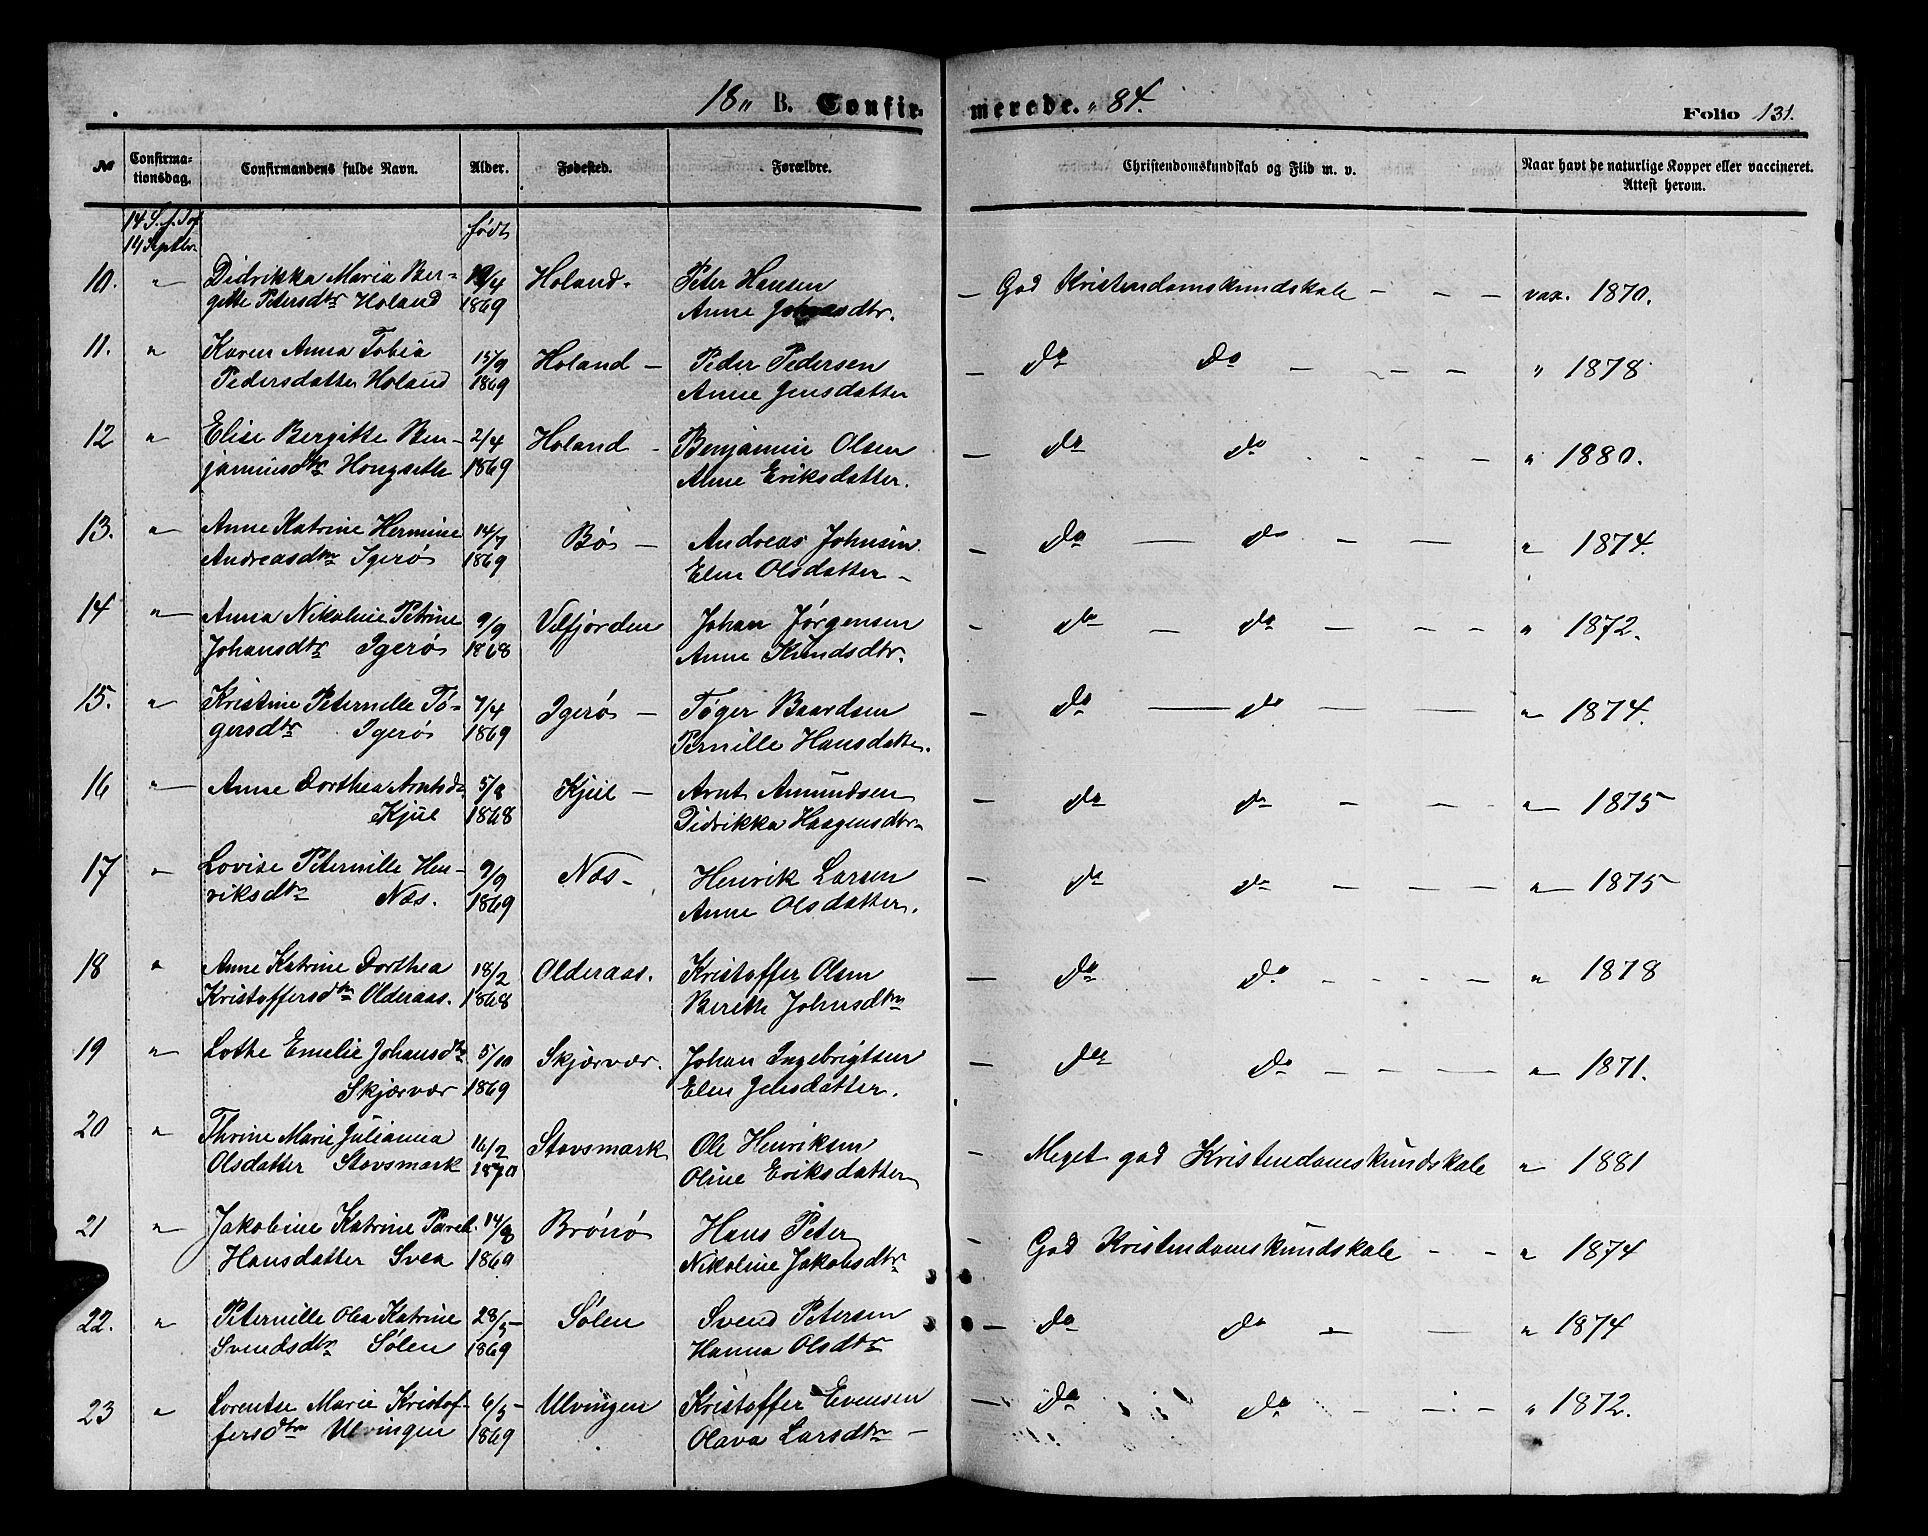 18 „ B. Confirmerede. „ 84.
Folio 131.
No Confirmationsdag. Confirmandens fulde Navn. Alder. Fødested. Forældre. Christendomskundskab og Flid m. v. Naar havt de naturlige Kopper eller vaccineret. Attest herom.
14 S. f. Tr.
14 Septbr. født
10. " Didrikka Maria Ber- 19/4 Holand. Peter Hansen – God Kristendomskundskab – – – vax. 1870.
gitte Petersdtr Holand 1869 Anne Johnsdtr.
11. " Karen Anna Tobia 15/9 Holand – Peder Pedersen – do do – – – – " 1878
Pedersdatter Holand 1869 Anne Jensdatter
12 " Elise Bergitte Ben- 2/4 Holand – Benjamin Olsen – do do – – – " 1880.
jaminsdtr Hongsette 1869 Anne Eriksdatter.
13. " Anne Katrine Hermine 14/7 Bøs – Andreas Johnsen – do – do – – " 1874.
Andreasdtr Igerøs 1869 Elen Olsdatter –
14 " Anna Nikoline Petrine 9/9 Velfjorden Johan Jørgensen – do – do – – – " 1872.
Johansdtr Igerøs 1868 Anne Knudsdtr.
15. " Kristine Peternille Tø- 7/4 Igerøs – Tøger Baardsen – do – do – – " 1874.
gersdtr Igerøs 1869 Pernille Hansdatter.
16 " Anne Dorthea Arntsd. 5/8 Kjul – Arnt Amundsen – do do – – – " 1875
Kjul 1868 Didrikka Haagensdtr
17 " Lovise Peternille Hen- 9/9 Næs – Henrik Larsen – do do – – – " 1875
riksdtr Næs. 1869 Anne Olsdatter.
18 " Anne Katrine Dorthea 18/2 Olderaas. Kristoffer Olsen – do do – – – – " 1878
Kristoffersdtr Olderaas. 1868 Bereth Johnsdtr
19 " Lothe Emelie Johansdtr 5/10 Skjærvær. Johan Ingebrigtsen – do do – – – – " 1871.
Skjærvær 1869 Elen Jensdatter.
20 " Thrine Marie Julianna 16/2 Stovsmark Ole Henriksen – Meget god Kristendomskundskab " 1881
Olsdatter Stovsmark 1870 Oline Eriksdatter
21 " Jakobine Katrine Parel. 14/8 Brønø Hans Peter – God Kristendomskundskab – – " 1874
Hansdatter Svea 1869 Nikoline Jakobsdtr
22. " Peternille Olea Katrine 28/5 Sølen Svend Petersen – do do – – " 1874
Svendsdtr Sølen 1869 Hanna Olsdtr
23 " Lorentse Marie Kristof- 6/5 Ulvingen Kristoffer Evensen – do do – – – " 1872.
fersdtr Ulvingen 1869 Olava Larsdtr –